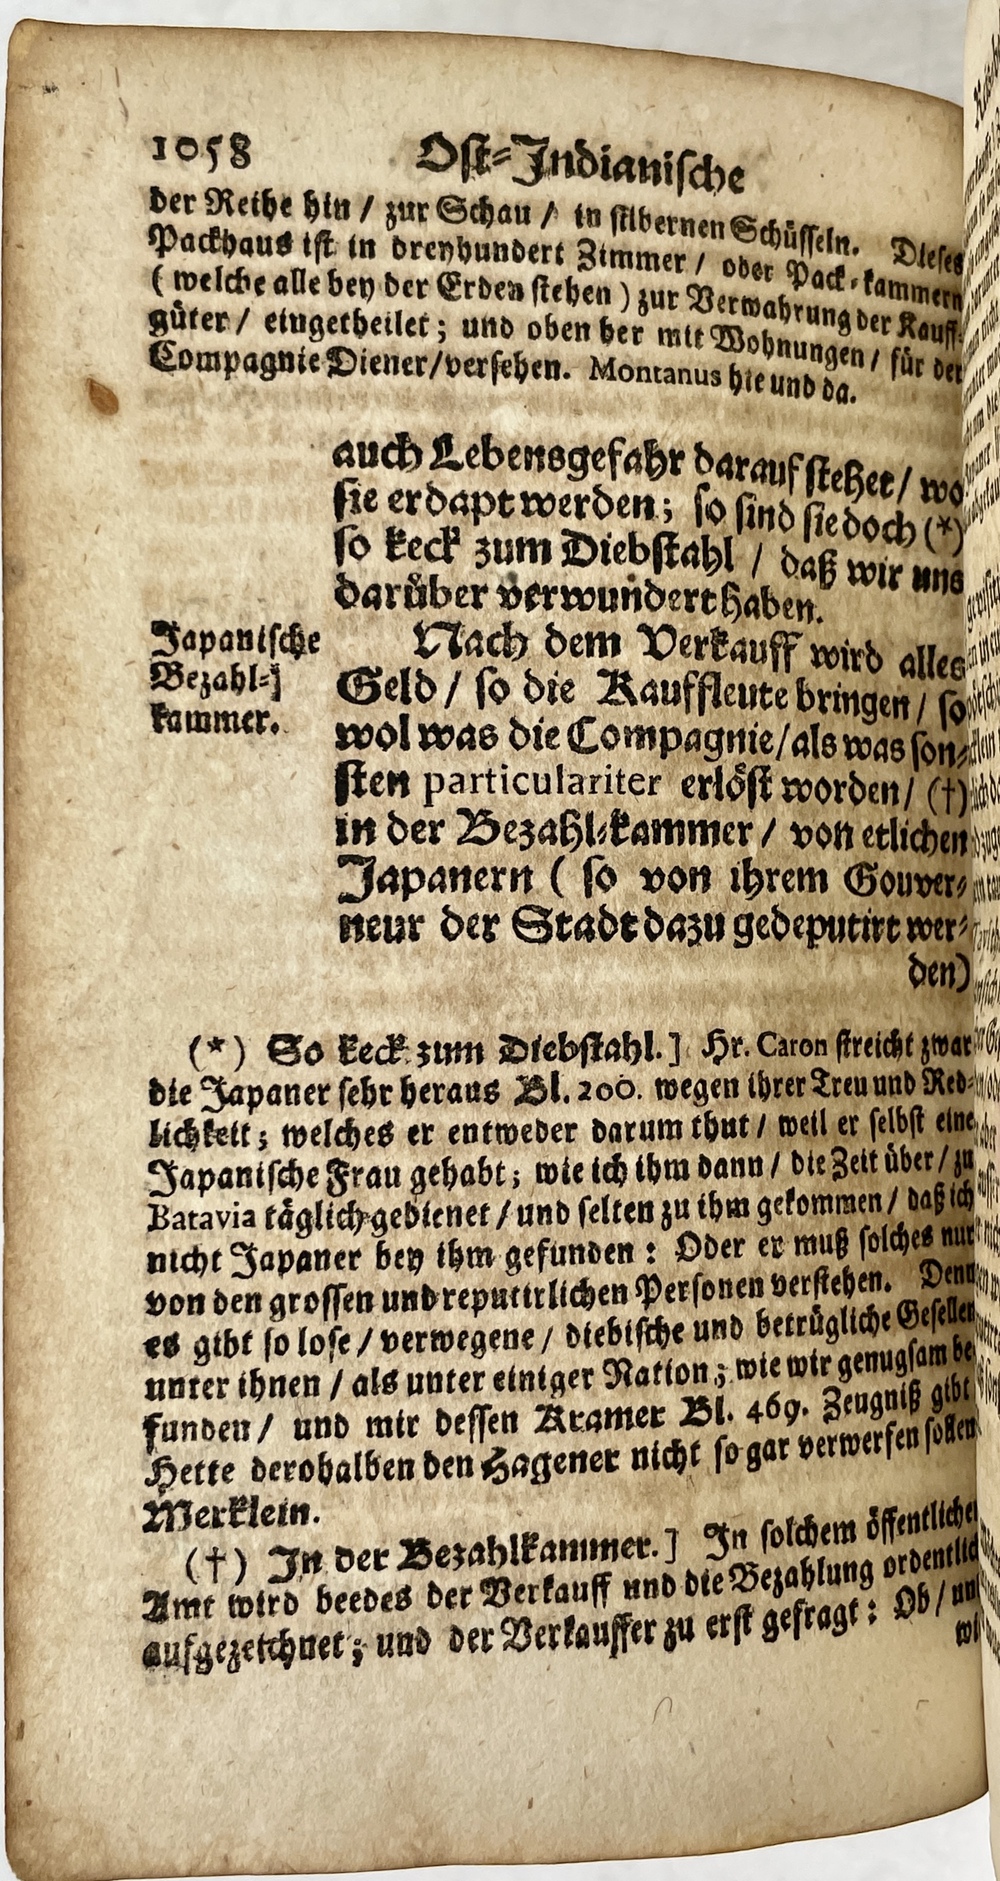 1058 Ost-Indianische
der Reihe hin / zur Schau / in silbernen Schüsseln. Dieses
Packhaus ist in dreyhundert Zimmer / oder Pack-kammern
( welche alle bey der Erden stehen ) zur Verwahrung der Kauff-
güter / eingetheilet; und oben her mit Wohnungen / für der
Compagnie Diener/versehen. Montanus hie und da.
auch Lebensgefahr darauf stehet / wo
sie erdapt werden; so sind sie doch (*)
so keck zum Diebstahl / daß wir uns
darüber verwundert haben.
Japanische
Bezahl-
kammer.
Nach dem Verkauff wird alles
Geld / so die Kauffleute bringen / so
wol was die Compagnie/als was son-
sten particulariter erlöst worden/ (†)
in der Bezahl-kammer / von etlichen
Japanern ( so von ihrem Gouver-
neur der Stadt dazu gedeputirt wer-
den)
(*) So keck zum Diebstahl.] Hr. Caron streicht zwar
die Japaner sehr heraus Bl. 200. wegen ihrer Treu und Red-
lichkeit; welches er entweder darum thut / weil er selbst eine
Japanische Frau gehabt; wie ich ihm dann / die Zeit über / zu
Batavia täglich gedienet / und selten zu ihm gekommen / daß ich
nicht Japaner bey ihm gefunden : Oder er muß solches nur
von den grossen und reputirlichen Personen verstehen. Denn
es gibt so lose / verwegene / diebische und betrügliche Gesellen
unter ihnen / als unter einiger Nation; wie wir genugsam be
funden / und mir dessen Kramer Bl. 469. Zeugniß gibt
Hette derohalben den Hagener nicht so gar verwerfen sollen
Merklein.
(†) In der Bezahlkammer.] In solchem öffentlichen
Amt wird beedes der Verkauff und die Bezahlung ordentlich
aufgezeichnet; und der Verkauffer zu erst gefragt : Ob / und